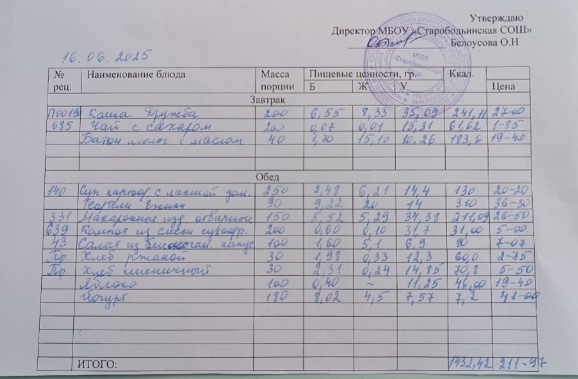 Утверждаю
Директор МБОУ «Старободьинская СОШ»
Белоусова О.Н
16.06.2025
№ рец Наименование блюда Масса порции Пищевые ценности, гр. Б Ж У Ккал. Цена
Завтрак
Каша Дружба 200 6,55 8,33 35,09 241,11 27-00
685 Чай с сахаром 200 0,07 0,01 15,31 61,62 1-85
Батон с маслом 40 15,10 10,26 183,6 19-40
Обед
140 Суп картоф с лапшой дом. 250 2,48 6,21 14,4 130 20-20
Тефтели Ёжики 90 9,22 20 14 310 36-30
331 Макаронные изд. отварные 150 5,52 5,29 34,38 211,09 26-50
639 Компот из смеси сухофр. 200 0,60 0,10 31,7 31,00 5-00
43 Салат из белокочан. капус 100 1,60 5,1 6,9 7-07
Пр. Хлеб ржаной 30 1,98 0,33 12,3 60,0 2-75
Пр. Хлеб пшеничный 30 2,31 0,24 14,85 70,8 5-50
Яблоко 100 0,40 - 11,25 46,00 19-40
Йогурт 180 8,02 4,5 7,57 7,2 41-00
ИТОГО: 1432,42 211-97